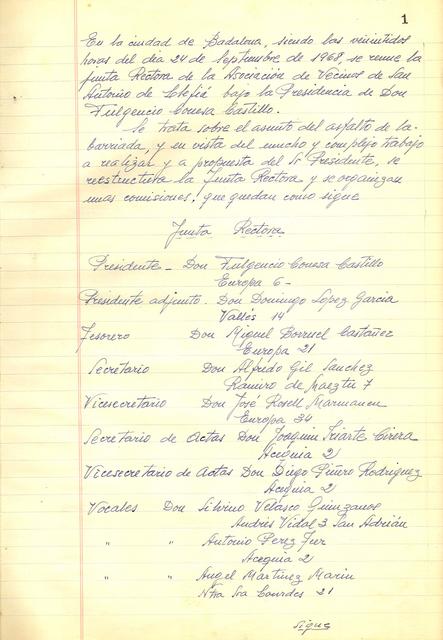 1
En la ciudad de Badalona, siendo las veintidos
horas del dia 24 de Septiembre de 1968, se reune la
Junta Rectora de la Asociación de Vecinos de San
Antonio de Llefiá bajo la Presidencia de Don
Fulgencio Conesa Castillo.
Se trata sobre el asunto del asfalto de la
barriada, y en vista del mucho y complejo trabajo
a realizar y a propuesta del Sr Presidente, se
reestructura la Junta Rectora y se organizan
unas comisiones, que quedan como sigue
Junta Rectora
Presidente - Don Fulgencio Conesa Castillo
Europa 6 -
Presidente adjunto. Don Domingo Lopez Garcia
Vallés 14
Tesorero Don Miguel Borruel Castañez
Europa 21
Secretario Don Alfredo Gil Sanchez
Ramiro de Maeztu 7
Vicesecretario Don José Rosell
Europa 34
Secretario de Actas Don Joaquin Iriarte Cirera
Acequia 2
Vicesecretario de Actas Don Diego Piñero Rodriguez
Acequia 2
Vocales Don Silvino Velasco
Andrés Vidal 3 San Adrián
" " Antonio Perez
Acequia 2
" " Angel Martinez Marin
Ntra Sra Lourdes 21
sigue